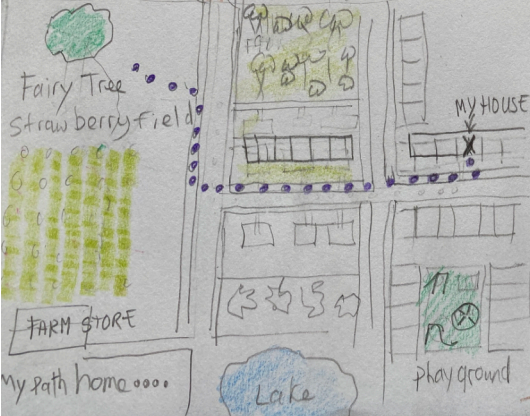 Fairy Tree
Strawberry field
MY HOUSE
FARM STORE
My path home....
Lake
playground